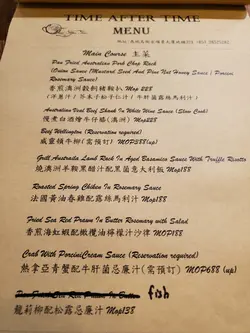 TIME AFTER TIME
MENU
Main Course 主菜
Pan Fried Australian Pork Chop Rack
(Onion Sauce / Mustard Seed And Pine Nut Honey Sauce / Porcini
Rosemary Sauce)
香煎澳洲穀飼豬鞍扒 Mop 228
Australian Veal Beef Shank In White Wine Sauce (Slow Cook)
慢煮白酒燴牛仔𦟌(澳洲) Mop 228
Beef Wellington (Reservation required)
威靈頓牛柳(需預訂) MOP588(up)
Grill Australia Lamb Rack In Aged Balsamico Sauce With Truffle Risotto
燒澳洲羊鞍黑醋汁配黑菌意大利飯 Mop188
Roasted Spring Chiken In Rosemary Sauce
法國黃油春雞配露絲瑪利汁 Mop188
Fried Sea Red Prawn In Butter Rosemary with Salad
香煎海虹蝦配橄欖油檸檬汁沙律 MOP188
Crab With PorciniCream Sauce (Reservation required)
熱拿亞青蟹配牛肝菌忌廉汁(需預訂) MOP688 (up)
fish
龍莉柳配松露忌廉汁 Mop138